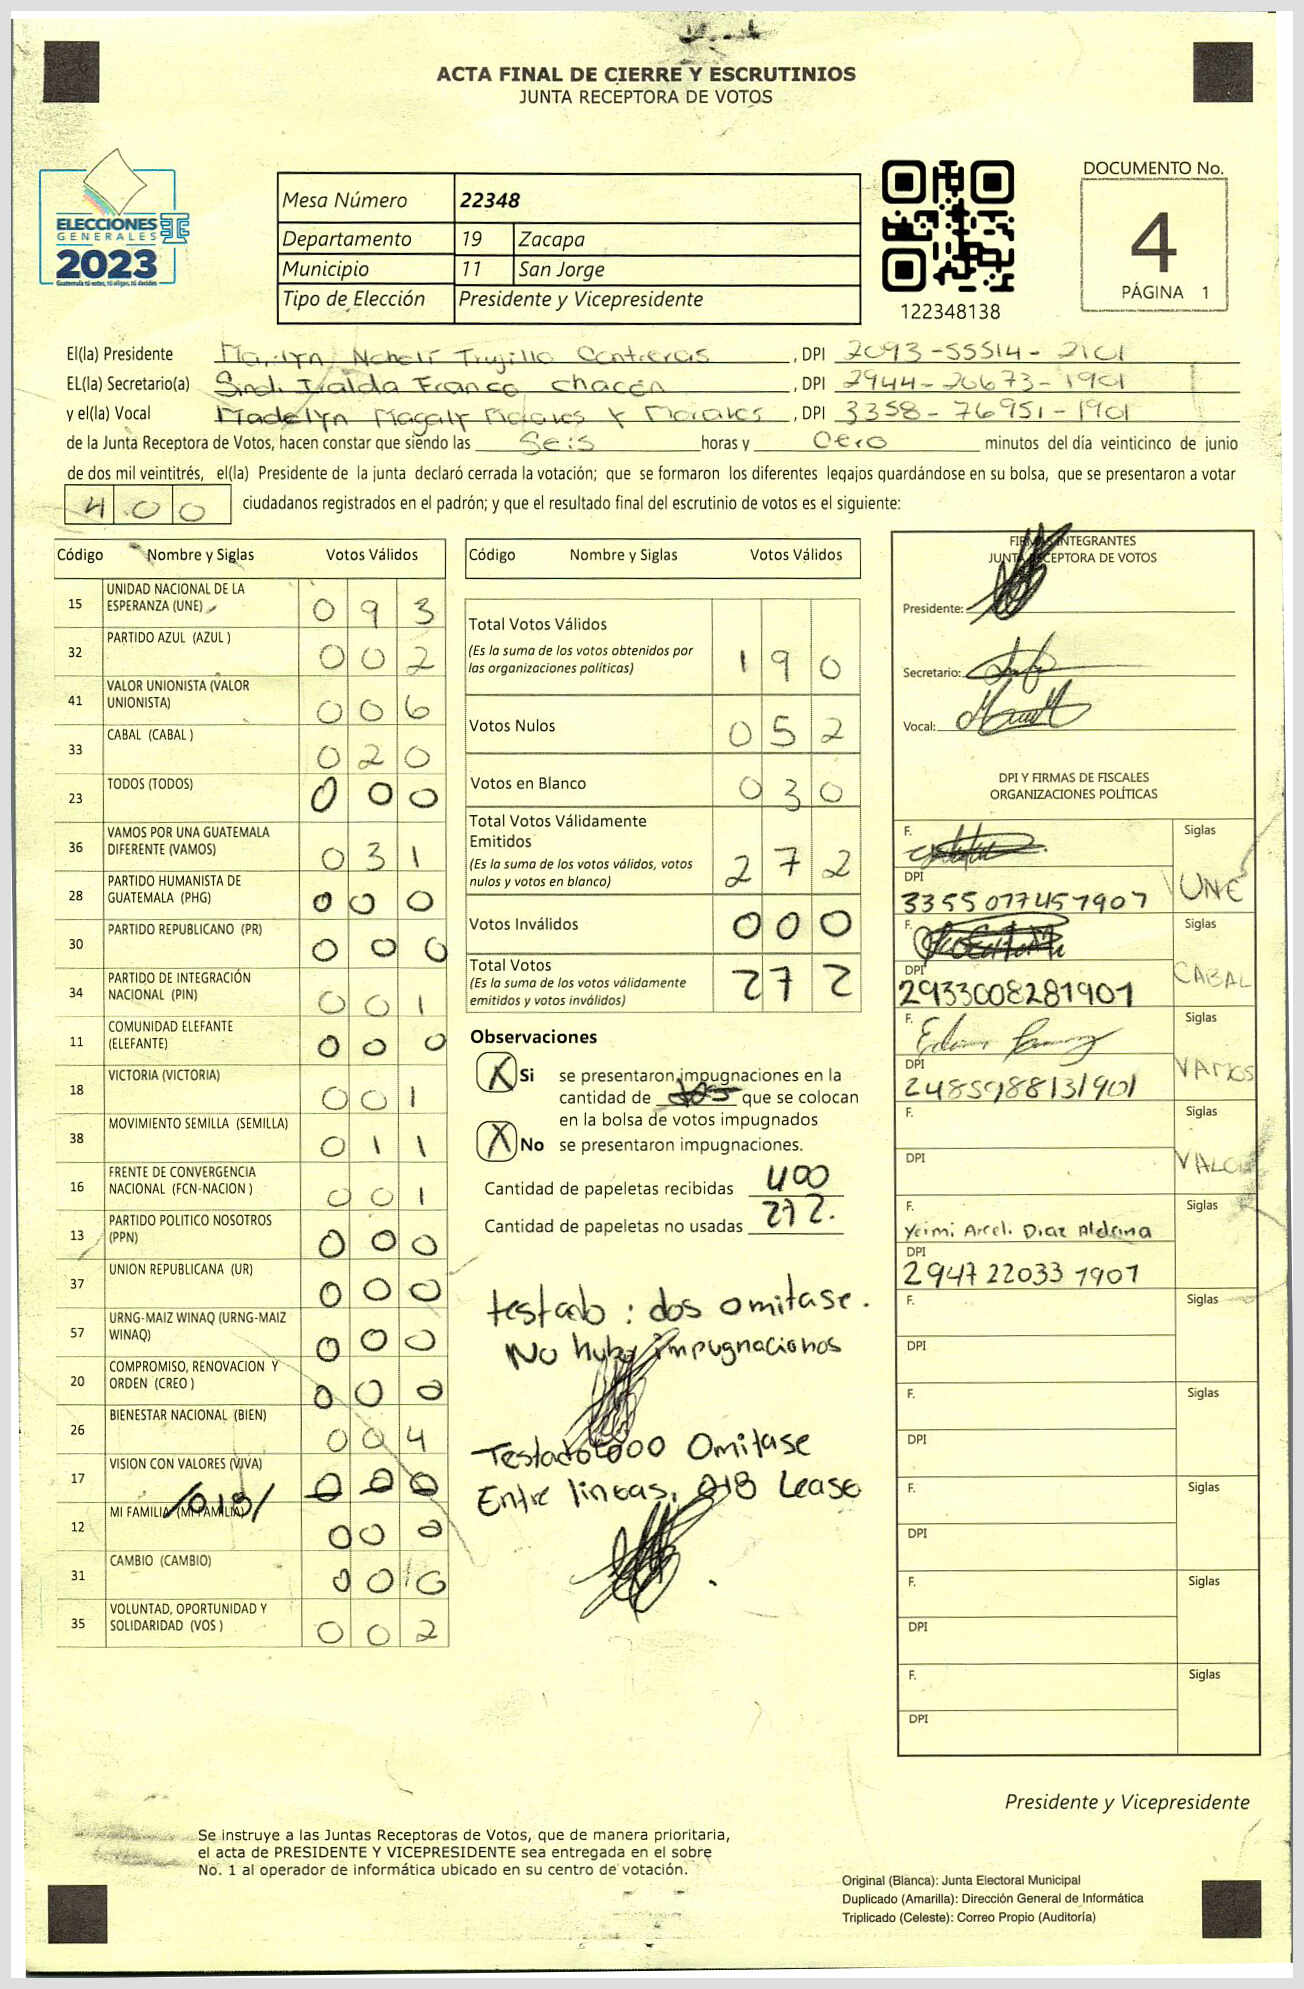 ACTA FINAL DE CIERRE Y ESCRUTINIOS
JUNTA RECEPTORA DE VOTOS
ELECCIONES
GENERALES
2023
Guatemala tú votas, tú eliges, tú decides
Mesa Número 22348
Departamento 19 Zacapa
Municipio 11 San Jorge
Tipo de Elección Presidente y Vicepresidente
122348138
DOCUMENTO No.
4
PÁGINA 1
El(la) Presidente Trujillo Contreras , DPI 2093-55514-2101
EL(la) Secretario(a) Franco chacón , DPI 2944-26673-1901
y el(la) Vocal Madelyn Magaly Morales y Morales , DPI 3358-76951-1901
de la Junta Receptora de Votos, hacen constar que siendo las Seis horas y Cero minutos del día veinticinco de junio
de dos mil veintitrés, el(la) Presidente de la junta declaró cerrada la votación; que se formaron los diferentes legajos guardándose en su bolsa, que se presentaron a votar
400 ciudadanos registrados en el padrón; y que el resultado final del escrutinio de votos es el siguiente:
Código Nombre y Siglas Votos Válidos
15 UNIDAD NACIONAL DE LA
ESPERANZA (UNE) 093
32 PARTIDO AZUL (AZUL ) 002
41 VALOR UNIONISTA (VALOR
UNIONISTA) 006
33 CABAL (CABAL ) 020
23 TODOS (TODOS) 000
36 VAMOS POR UNA GUATEMALA
DIFERENTE (VAMOS) 031
28 PARTIDO HUMANISTA DE
GUATEMALA (PHG) 000
30 PARTIDO REPUBLICANO (PR) 000
34 PARTIDO DE INTEGRACIÓN
NACIONAL (PIN) 001
11 COMUNIDAD ELEFANTE
(ELEFANTE) 000
18 VICTORIA (VICTORIA) 001
38 MOVIMIENTO SEMILLA (SEMILLA) 011
16 FRENTE DE CONVERGENCIA
NACIONAL (FCN-NACION ) 001
13 PARTIDO POLITICO NOSOTROS
(PPN) 000
37 UNION REPUBLICANA (UR) 000
57 URNG-MAIZ WINAQ (URNG-MAIZ
WINAQ) 000
20 COMPROMISO, RENOVACION Y
ORDEN (CREO ) 000
26 BIENESTAR NACIONAL (BIEN) 004
17 VISION CON VALORES (VIVA) 000
/018/
12 MI FAMILIA (MI FAMILIA) 000
31 CAMBIO (CAMBIO) 000
35 VOLUNTAD, OPORTUNIDAD Y
SOLIDARIDAD (VOS ) 002
Código Nombre y Siglas Votos Válidos
Total Votos Válidos
(Es la suma de los votos obtenidos por
las organizaciones políticas) 190
Votos Nulos 052
Votos en Blanco 030
Total Votos Válidamente
Emitidos
(Es la suma de los votos válidos, votos
nulos y votos en blanco) 272
Votos Inválidos 000
Total Votos
(Es la suma de los votos válidamente
emitidos y votos inválidos) 272
Observaciones
X Si se presentaron impugnaciones en la
cantidad de dos que se colocan
en la bolsa de votos impugnados
X No se presentaron impugnaciones.
Cantidad de papeletas recibidas 400
Cantidad de papeletas no usadas 272.
testado : dos omitase.
No hubo impugnaciones
Testado 000 Omitase
Entre lineas, 018 Lease
FIRMAS INTEGRANTES
JUNTA RECEPTORA DE VOTOS
Presidente:
Secretario:
Vocal:
DPI Y FIRMAS DE FISCALES
ORGANIZACIONES POLÍTICAS
F. Siglas
DPI UNE
3355077451907
F. Siglas
DPI CABAL
2933008281901
F. Siglas
DPI VAMOS
2485988131901
F. Siglas
DPI VALOR
F. Siglas
Yeimi Arceli Diaz Aldana
DPI
2947220331901
F. Siglas
DPI
F. Siglas
DPI
F. Siglas
DPI
F. Siglas
DPI
F. Siglas
DPI
Presidente y Vicepresidente
Se instruye a las Juntas Receptoras de Votos, que de manera prioritaria,
el acta de PRESIDENTE Y VICEPRESIDENTE sea entregada en el sobre
No. 1 al operador de informática ubicado en su centro de votación.
Original (Blanca): Junta Electoral Municipal
Duplicado (Amarilla): Dirección General de Informática
Triplicado (Celeste): Correo Propio (Auditoría)